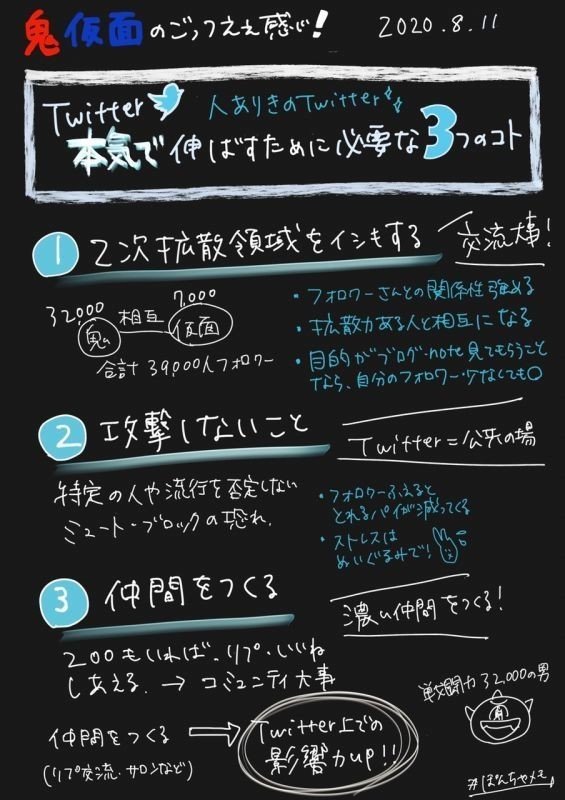 鬼仮面のごっつええ感じ!
2020.8.11
Twitter 人ありきのTwitter
本気で伸ばすために必要な3つのコト
1 2次拡散領域をイシキする
交流大事!
32,000 相互 7,000
鬼 仮面
合計39,000人フォロワー
・フォロワーさんとの関係性強める
・拡散力ある人と相互になる
・目的がブログ・note見てもらうこと
なら、自分のフォロワー少なくても○
2 攻撃しないこと
Twitter=公共の場
特定の人や流行を否定しない
ミュート・ブロックの恐れ.
・フォロワーふえると
とれるパイが減ってくる
・ストレスは
ぬいぐるみで!
3 仲間をつくる
濃い仲間をつくる!
200もいれば、リプ・いいね
しあえる. → コミュニティ大事
仲間をつくる
(リプ交流・サロンなど)
Twitter上での
影響力up!!
戦闘力32,000の男
#ぽんちゃメモ